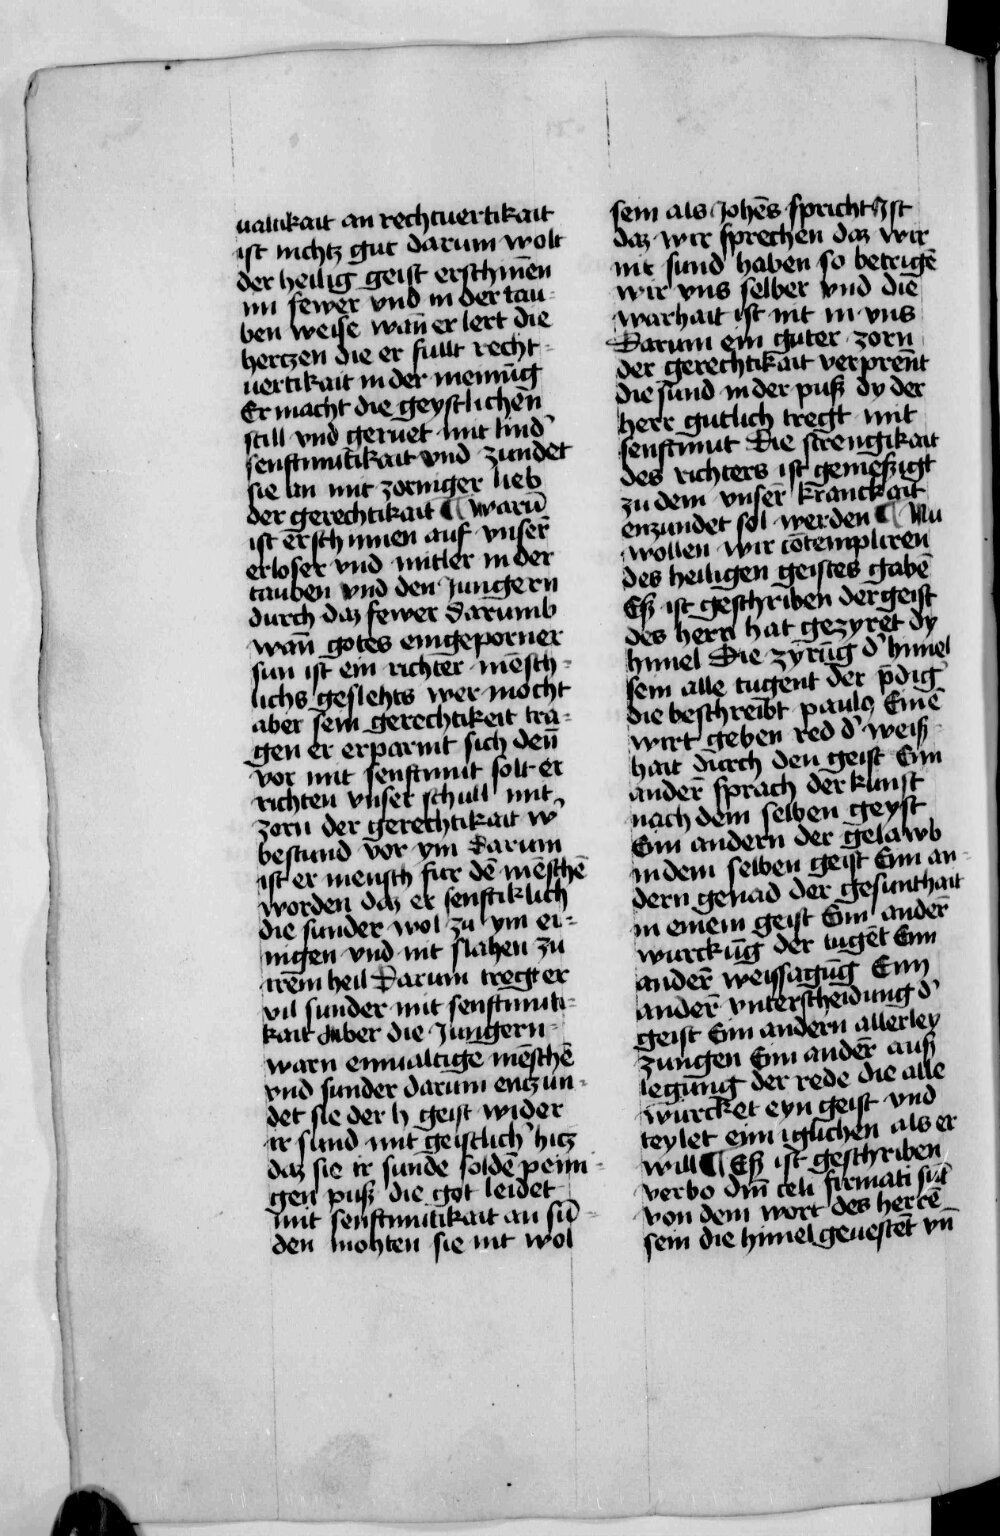 ualtikait an rechtuertikait
ist nichtz gut darum wolt
der heilig geist erschinēn
im fewer vnd in der tau-
ben weise wañ er lert die
hertzen die er fullt recht-
uertikait in der meinūg
Er macht die geystlichen
still vnd geruet mit lind'
senftmutikait vnd zundet
sie an mit zorniger lieb
der gerechtikait ¶ warū
ist erschinnen auf vnser̄
erloser vnd mitler in der
tauben vnd den Jungern
durch daz fewer Darumb
wañ gotes eingeporner
sun ist ein richter mēsch-
lichs geslehts wer mocht
aber sein gerechtikeit tra-
gen er erparmt sich deñ
vor mit senftmut solt er
richten vnser schull mit
zorn der gerechtikait w'
bestund vor ym Darum
ist er mensch fur dē mēschē
worden daz er senftiklich
die sunder wol zu ym ei-
nigen vnd nit slahen zu
irem heil Darum tregt er
vil sunder mit senftmuti-
kait Aber die Jungern
warn einualtige mēschē
vnd sunder darum entzun-
det sie der h geist wider
ir sund mit geistlich' hicz
daz sie ir sunde soldē peini-
gen puß die got leidet
mit senftmutikait an sū-
den mohten sie nit wol
sein als Johēs spricht Ist
daz wir sprechen daz wir
nit sund haben so betrigē
wir vns selber vnd die
warhait ist nit in vns
Darum ein guter zorn
der gerechtikait verprēnt
die sund in der puß dy der
herr gutlich tregt mit
senftmut Die strengikait
des richters ist gemeßzigt
zu dem vnser̄ kranckait
enzundet sol werden ¶ Nu
wollen wir cōtempliren
des heiligen geistes gabē
Eß ist geschriben der geist
des herrn hat gezyret dy
himel Die zyrūg d' himel
sein alle tugent der p̄dig'
die beschreibt paulꝯ Einē
wirt geben red d' weiß-
hait durch den geist Eim
ander̄ sprach der kunst
nach dem selben geyst
Eim andern der gelawb
in dem selben geist Eim an-
dern genad der gesunthait
in einem geist Eim ander̄
wurckūg der tugēt Eim
ander̄ weissagūg Eim
ander̄ vnterscheidung d'
geist Eim andern allerley
zungen Eim ander̄ auß
legūng der rede die alle
wurcket eyn geist vnd
teylet eim iglichen als er
will ¶ Eß ist geschriben
verbo dm̄ celi firmati sūt
von dem wort des herrē
sein die himel geuestet vñ